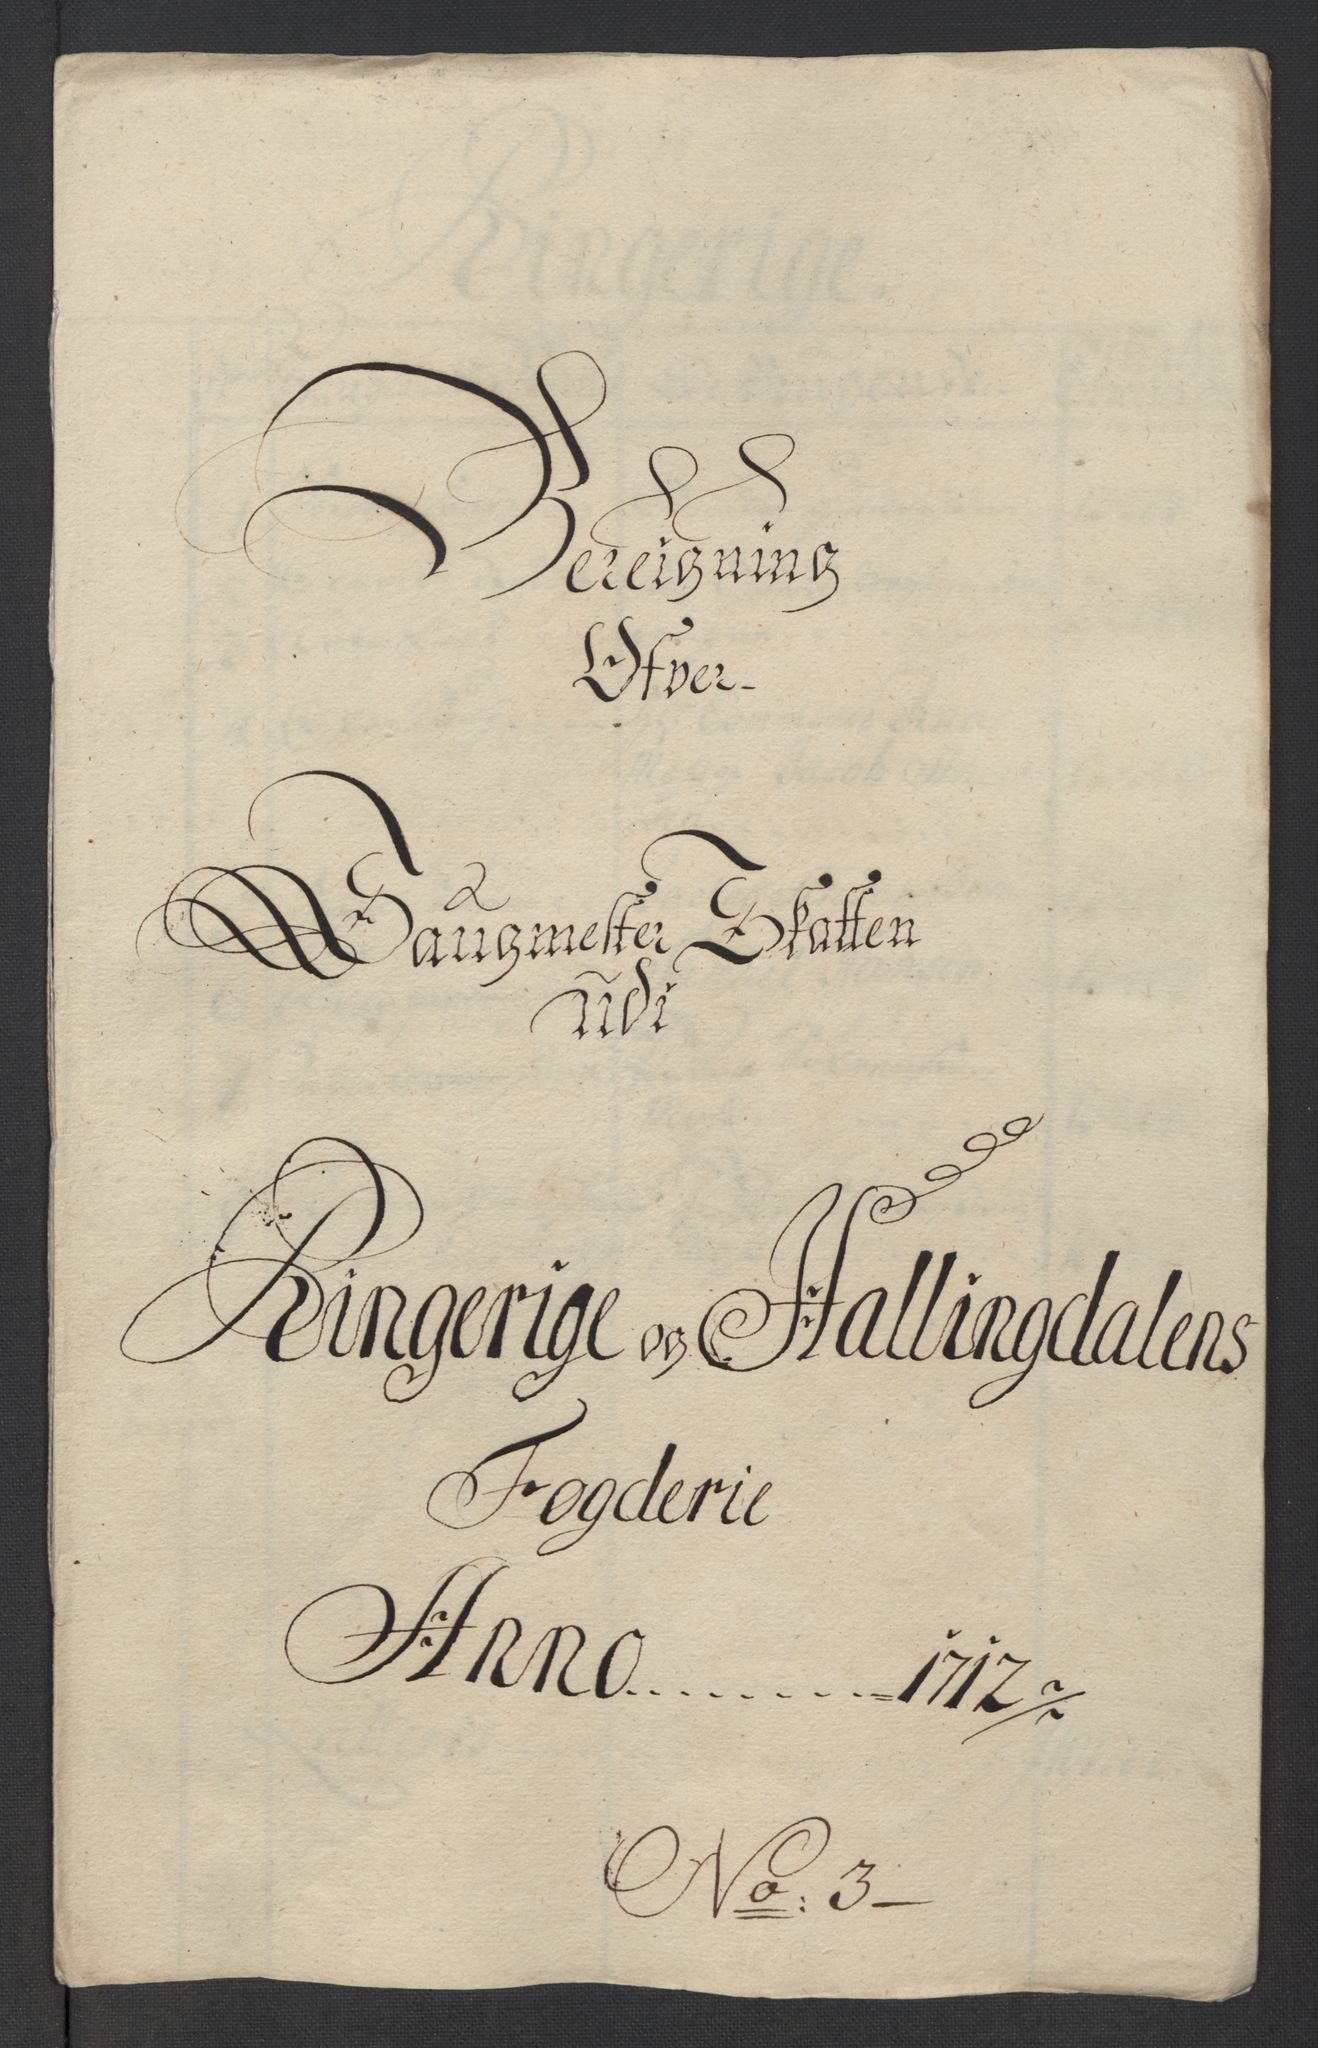 Bereigning
Ofver
Saugmester Skatten
udi
Ringerige og Hallingdalens
Fogderie
Anno . . . . . . . . 1712
No: 3